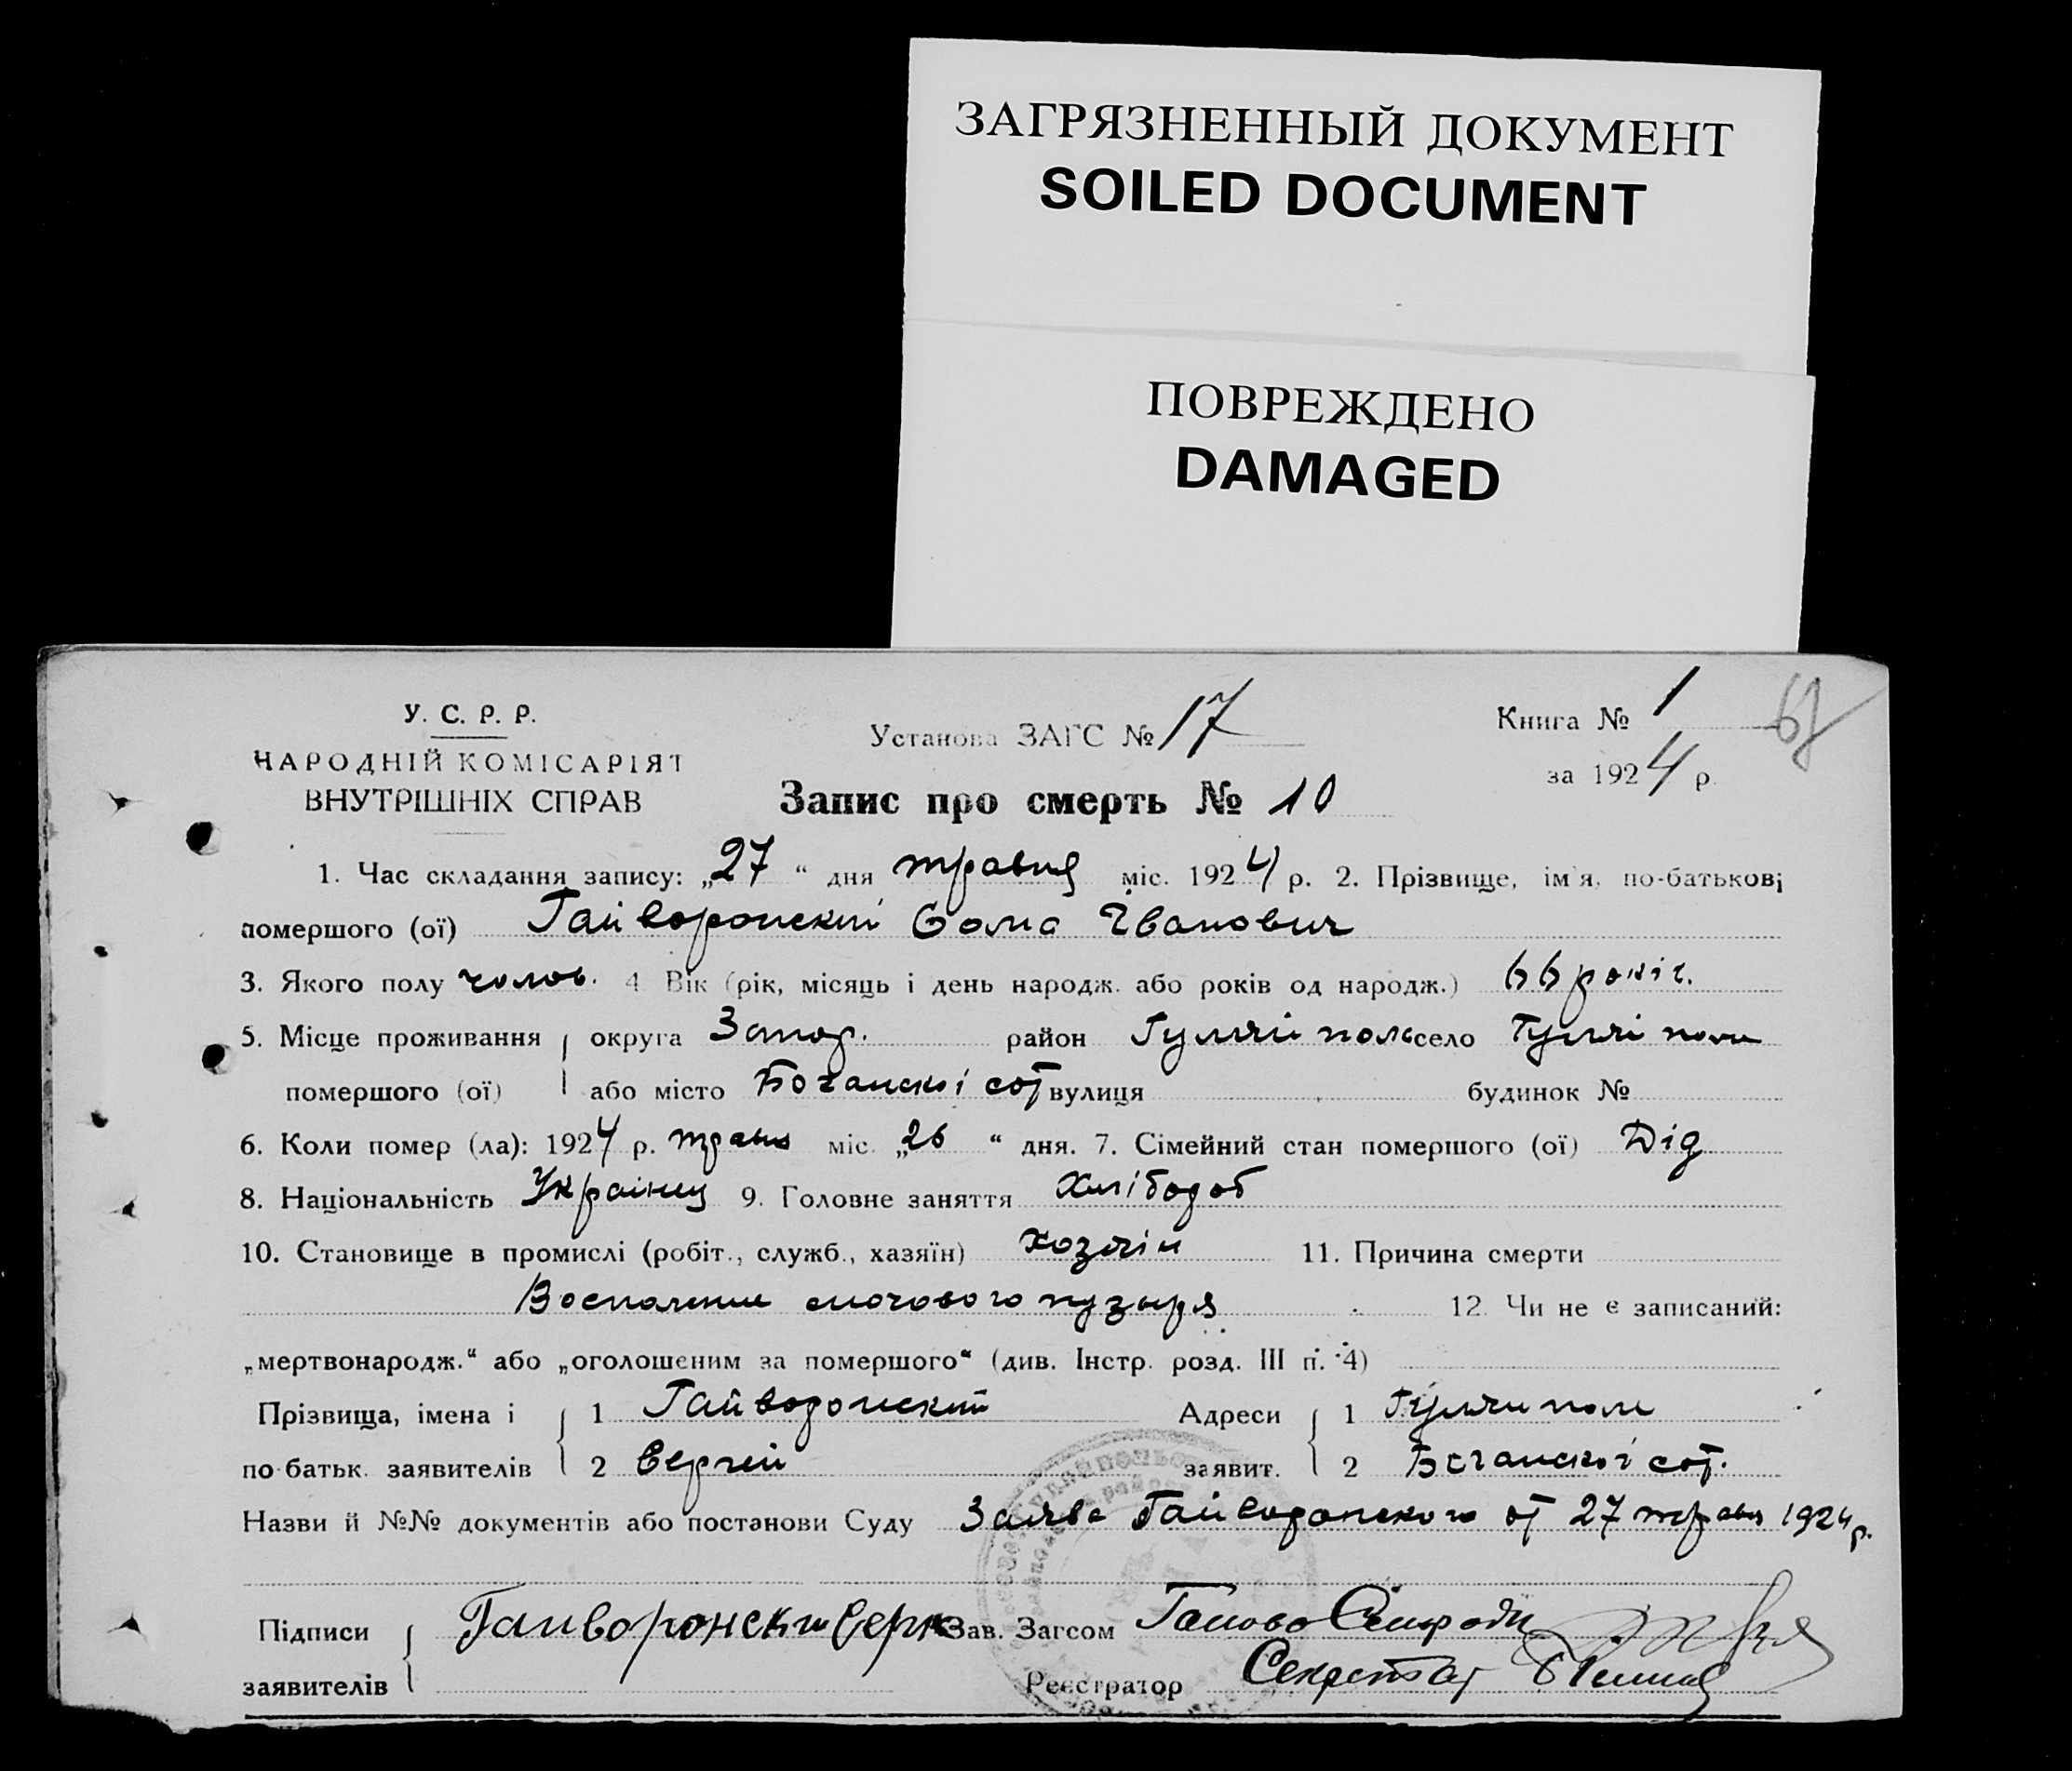 ЗАГРЯЗНЕННЫЙ ДОКУМЕНТ
SOILED DOCUMENT
ПОВРЕЖДЕНО
DAMAGED
У. С. Р. Р.
НАРОДНІЙ КОМІСАРІЯТ
ВНУТРІШНІХ СПРАВ
Установа ЗАГС № 17
Книга № 1
67
за 1924 р.
Запис про смерть № 10
1. Час складання запису: „27“ дня травня міс. 1924 р. 2. Прізвище, ім'я, по-батькові
помершого (ої) Гайворонский Фома Іванович
3. Якого полу чолов. 4 Вік (рік, місяць і день народж. або років од народж.) 66 років.
5. Місце проживання округа Запор. район Гуляй поль село Гуляй поле
помершого (ої) або місто Бочанскої сот вулиця будинок №
6. Коли помер (ла): 1924 р. травня міс. „26“ дня. 7. Сімейний стан помершого (ої) Дід
8. Національність Українец 9. Головне заняття Хлібороб
10. Становище в промислі (робіт., служб., хазяїн) Хозяїн 11. Причина смерти
Воспаление мочового пузыря 12. Чи не є записаний:
„мертвонародж.“ або „оголошеним за помершого“ (див. Інстр. розд. III п. 4)
Прізвища, імена і 1 Гайворонский Адреси 1 Гуляйполе
по-батьк. заявителів 2 Сергей заявит. 2 Бочанскої сот.
Назви й №№ документів або постанови Суду Заява Гайворонского от 27 травня 1924 р.
Підписи Гайворонски Серг Зав. Загсом Голова
заявителів Реєстратор Секретар